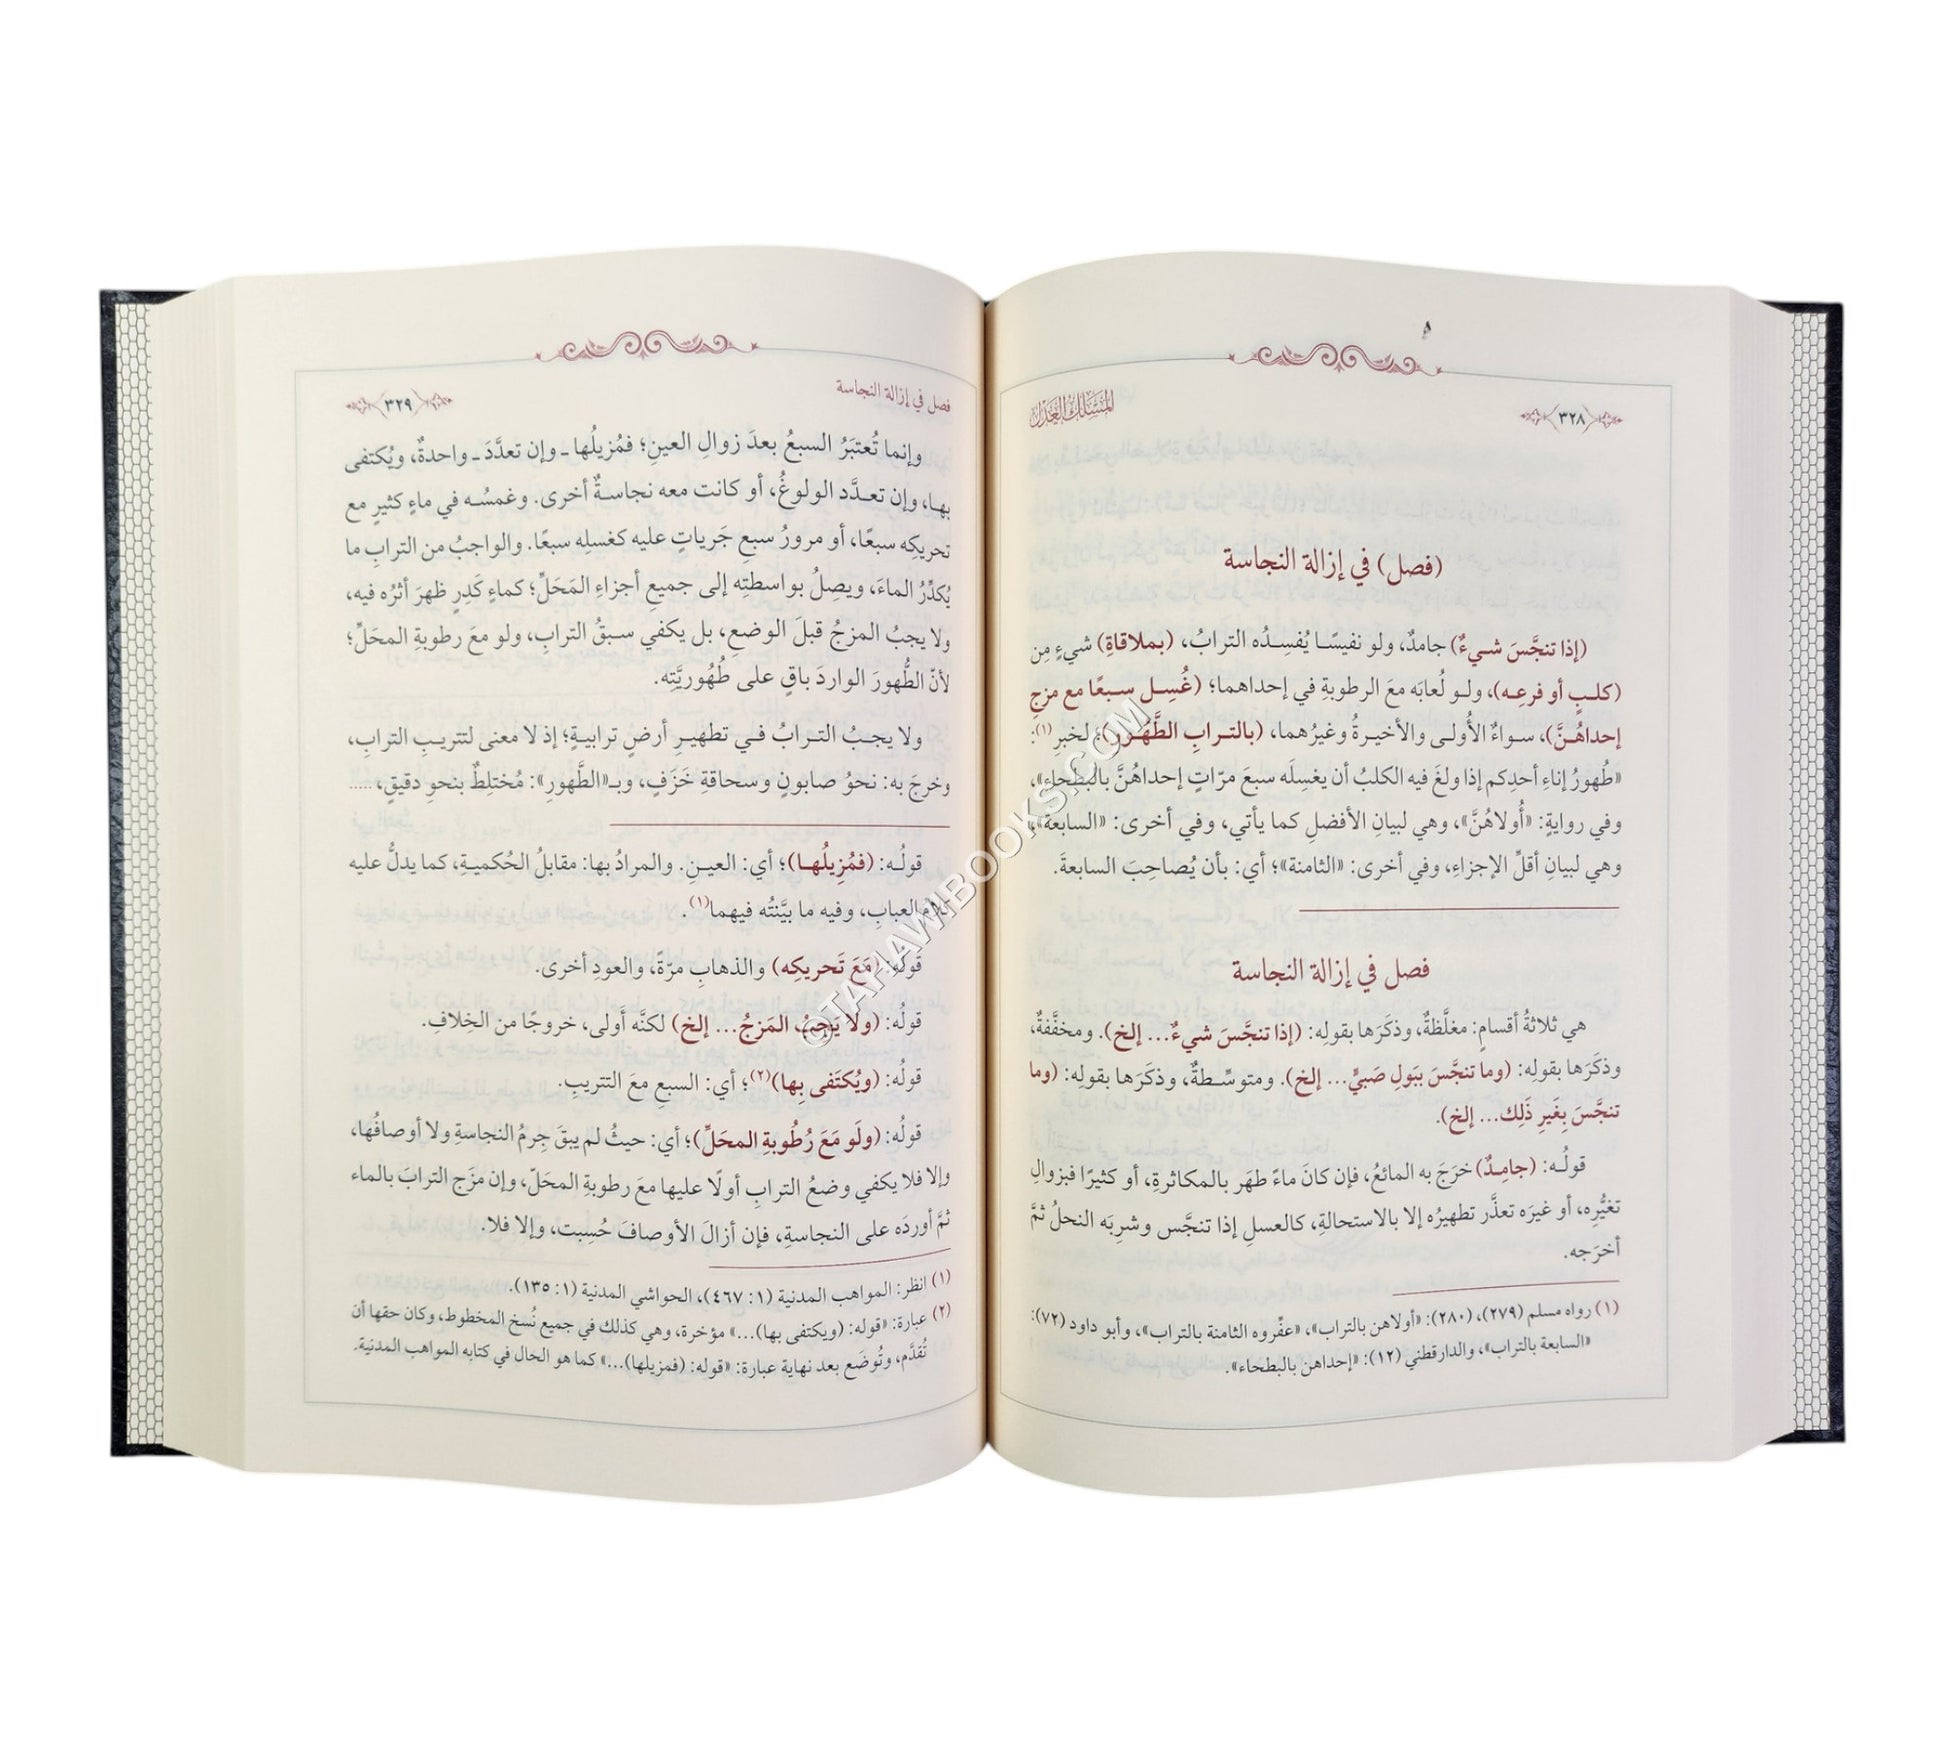 ٣٢٨
المسلك العدل
(فصل) في إزالة النجاسة
(إذا تنجَّسَ شيءٌ) جامدٌ، ولو نفيسًا يُفسِدُه الترابُ، (بملاقاةِ) شيءٍ مِن
(كلبٍ أو فرعِه)، ولو لُعابَه معَ الرطوبةِ في إحداهما؛ (غُسِل سبعًا مع مزجِ
إحداهُنَّ)، سواءٌ الأُولى والأخيرةُ وغيرُهما، (بالترابِ الطَّهُورِ)؛ لخبرِ(١):
«طُهورُ إناءِ أحدِكم إذا ولغَ فيه الكلبُ أن يغسِلَه سبعَ مرّاتٍ إحداهُنَّ بالبطحاءِ»،
وفي روايةٍ: «أُولاهُنَّ»، وهي لبيانِ الأفضلِ كما يأتي، وفي أخرى: «السابعة»،
وهي لبيانِ أقلِّ الإجزاءِ، وفي أخرى: «الثامنة»؛ أي: بأن يُصاحِبَ السابعةَ.
فصل في إزالة النجاسة
هي ثلاثةُ أقسامٍ: مغلَّظةٌ، وذكَرَها بقولِه: (إذا تنجَّسَ شيءٌ... إلخ). ومخفَّفةٌ،
وذكَرَها بقولِه: (وما تنجَّسَ ببَولِ صَبيٍّ... إلخ). ومتوسِّطةٌ، وذكَرَها بقولِه: (وما
تنجَّسَ بِغَيرِ ذَلِك... إلخ).
قولُه: (جامِدٌ) خرَجَ به المائعُ، فإن كانَ ماءً طهَر بالمكاثرةِ، أو كثيرًا فبزوالِ
تغيُّرِه، أو غيرَه تعذَّر تطهيرُه إلا بالاستحالةِ، كالعسلِ إذا تنجَّس وشرِبَه النحلُ ثمَّ
أخرَجه.
(١) رواه مسلم (٢٧٩)، (٢٨٠): «أولاهن بالتراب»، «عفِّروه الثامنة بالتراب»، وأبو داود (٧٢):
«السابعة بالتراب»، والدارقطني (١٢): «إحداهن بالبطحاء».
فصل في إزالة النجاسة
٣٢٩
وإنما تُعتبَرُ السبعُ بعدَ زوالِ العينِ؛ فمُزيلُها ـ وإن تعدَّدَ ـ واحدةٌ، ويُكتفى
بها، وإن تعدَّد الولوغُ، أو كانت معه نجاسةٌ أخرى. وغمسُه في ماءٍ كثيرٍ مع
تحريكِه سبعًا، أو مرورُ سبعِ جَرياتٍ عليه كغسلِه سبعًا. والواجبُ من الترابِ ما
يُكدِّرُ الماءَ، ويصِلُ بواسطتِه إلى جميعِ أجزاءِ المَحَلِّ؛ كماءٍ كَدِرٍ ظهرَ أثرُه فيه،
ولا يجبُ المزجُ قبلَ الوضعِ، بل يكفي سبقُ الترابِ، ولو معَ رطوبةِ المحَلِّ؛
لأنّ الطَّهورَ الواردَ باقٍ على طُهُوريَّتِه.
ولا يجبُ الترابُ في تطهيرِ أرضٍ ترابيةٍ؛ إذ لا معنى لتتريبِ الترابِ،
وخرجَ به: نحوُ صابونٍ وسحاقةِ خَزَفٍ، وبـ«الطَّهورِ»: مُختلِطٌ بنحوِ دقيقٍ، .....
قولُه: (فمُزِيلُها)؛ أي: العينِ. والمرادُ بها: مقابلُ الحُكميةِ، كما يدلُّ عليه
كلامُ العبابِ، وفيه ما بيَّنتُه فيهما(١).
قولُه: (مَعَ تَحريكِه) والذهابِ مرّةً، والعودِ أخرى.
قولُه: (ولا يَجبُ المَزجُ... إلخ) لكنَّه أَولى، خروجًا من الخِلافِ.
قولُه: (ويُكتَفى بِها)(٢)؛ أي: السبعِ معَ التتريبِ.
قولُه: (ولَو مَعَ رُطُوبةِ المحَلِّ)؛ أي: حيثُ لم يبقَ جِرمُ النجاسةِ ولا أوصافُها،
وإلا فلا يكفي وضعُ الترابِ أولًا عليها معَ رطوبةِ المحَلّ، وإن مزَج الترابَ بالماء
ثمَّ أوردَه على النجاسةِ، فإن أزالَ الأوصافَ حُسِبت، وإلا فلا.
(١) انظر: المواهب المدنية (١: ٤٦٧)، الحواشي المدنية (١: ١٣٥).
(٢) عبارة: «قوله: (ويكتفى بها)...» مؤخرة، وهي كذلك في جميع نُسخ المخطوط، وكان حقها أن
تُقدَّم، وتُوضَع بعد نهاية عبارة: «قوله: (فمزيلها)...» كما هو الحال في كتابه المواهب المدنية.
©TAHAWIBOOKS.COM